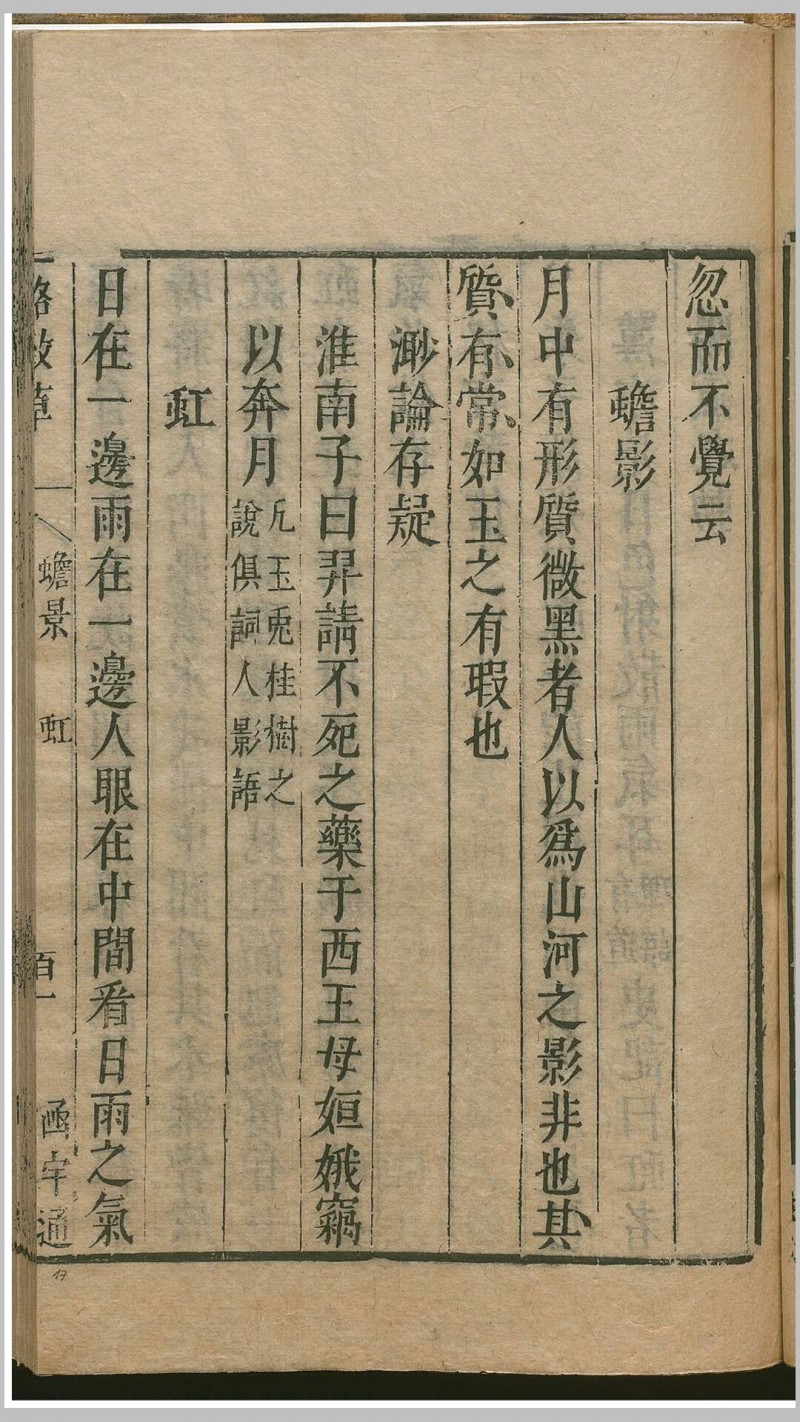 忽而不覺云
蟾影
月中有形質微黑者人以爲山河之影非也其
質有常如玉之有瑕也
渺論存疑
淮南子曰羿請不死之藥于西王母姮娥竊
以奔月
凡玉兎桂樹之
說俱詞人影語
虹
日在一邊雨在一邊人眼在中間看日雨之氣
格致草
蟾景
虹
百一
函宇通
17